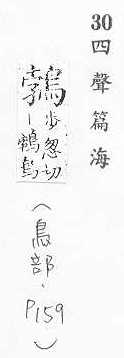 30 四聲篇海
鵓 步忽切
鳥
(鳥部, P159)